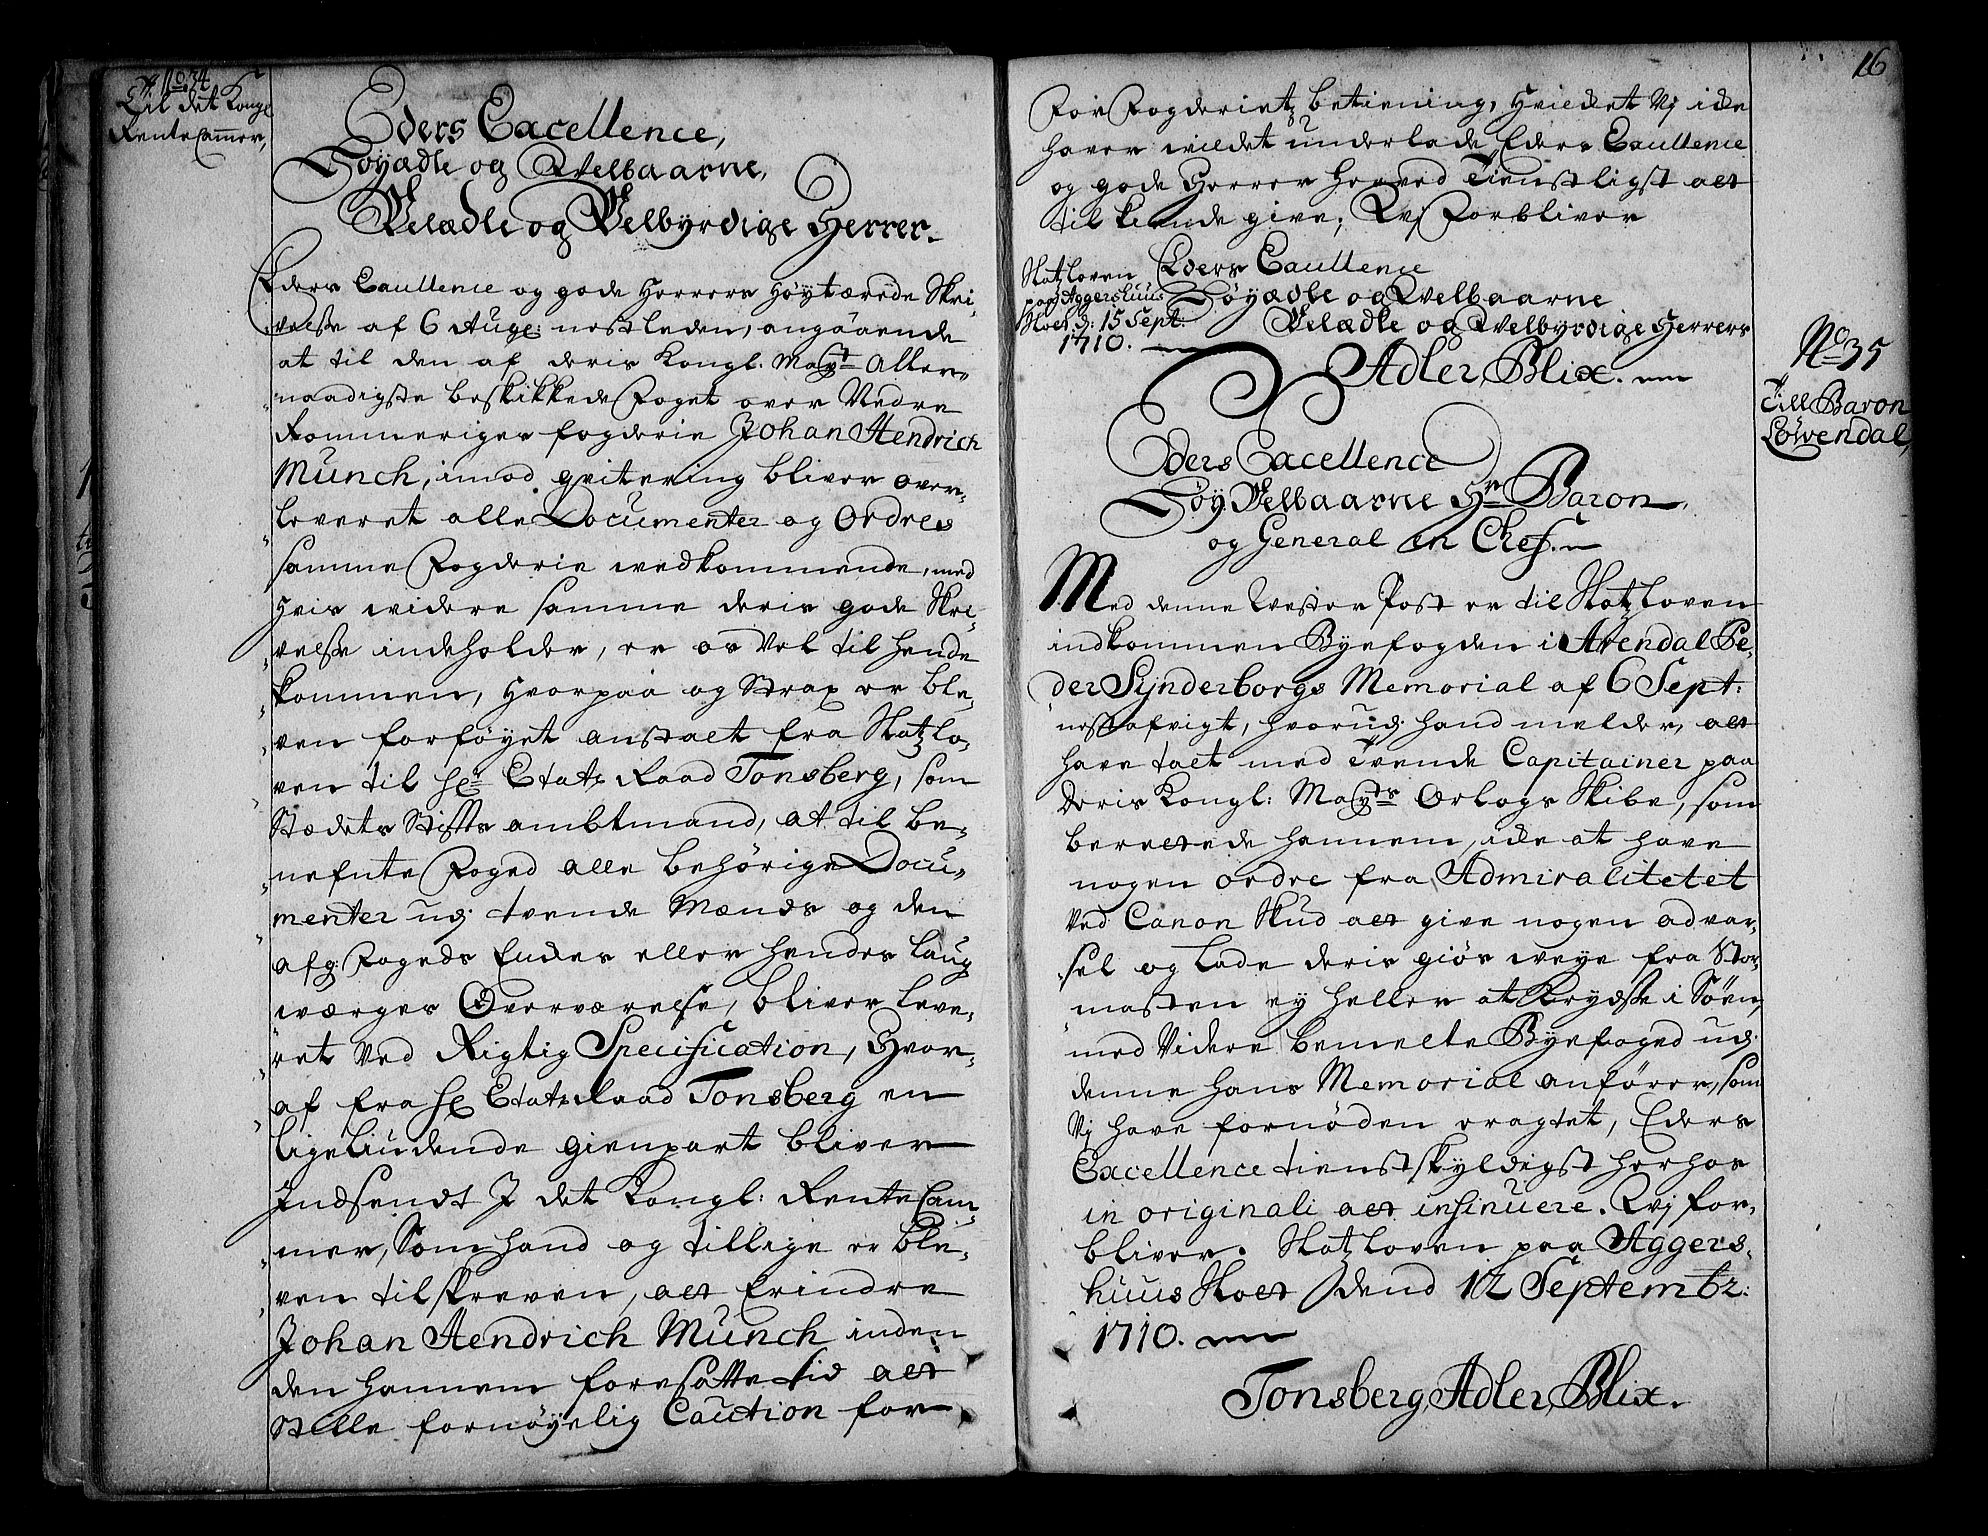 No 34
Til det Kongl
Rente Cammer,
Eders Excellence,
Høyædle og Velbaarne,
Velædle og Velbyrdige Herrer.
Eders Excellence og gode Herrers høytærede Skri-
velse af 6 Aug: nestleden, angaaende
at til den af deris Kongl. Mayst Aller-
naadigste beskikkede Foget over Nedre
Rommeriges fogderie Johan Hendrich
Munch, imod qvitering bliver over-
leveret alle Documenter og Ordres
samme Fogderie vedkommende, med
hvis widere samme deris gode Skri-
velse indeholder, er os Vel til hende
kommen, hvorpaa og strax er ble-
ven forføyet anstalt fra Slotzlo-
ven til Hr Etats Raad Tonsberg, som
Stædets Stiftsambtmand, at til be-
nefnte Foged alle behørige Docu-
menter udj tvende Mænds og den
afg: Fogeds Enckes eller hendes laug
wærges Overværelse, bliver leve-
ret Ved Rigtig Specification, Hvor-
af fra Hr Etats Raad Tonsberg en
ligeliudende gienpart bliver
Indsendt I det Kongl: Rente Cam-
mer, Som hand og tillige er ble-
ven tilskreven, att Erindre
Johan Hendrich Munch inden
den hannem foresatte tid att
Stille fornøyelig Caution for
16
For Fogderietz betiening, Hvilcket Vj icke
haver vildet underlade Eders Excellence
og gode Herrer herved Tienstligst att
til kiende give; Wj Forbliver
Slotzloven
paa Aggershuus
Slott d: 15 Sept:
1710.
Eders Excellence
Høyædle og Velbaarne
Velædle og Velbyrdige Herrers
Adler, Blix.
No 35
Till Baron
Løwendal,
Eders Excellence
Høy Velbaarne Hr Baron
og General en Chef.
Med denne Vester Post er til Slotzloven
indkommen Byefogden i Arendal Pe-
der Synderborgs Memorial af 6 Sept:
nest afvigt, hvorudj hand melder, att
have talt med Tvende Capitainer paa
Deris Kongl: Mayts Orlogs Skibe, som
berettede hannem, icke at have
nogen ordre fra Admiralitetet
Ved Canon Skud att give nogen advar-
sel og lade deris giøs weye fra Stor-
masten ey heller at Krydsse i Søen,
med Videre bemelte Byefoged udj
denne hans Memorial anfører, som
Vj have fornøden eragtet, Eders
Excellence tienstskyldigst herhos
in originali att insinuere. Wj for-
bliver. Slotzloven paa Aggers-
huus Slott dend 12 Septembr:
1710.
Tonsberg, Adler, Blix.